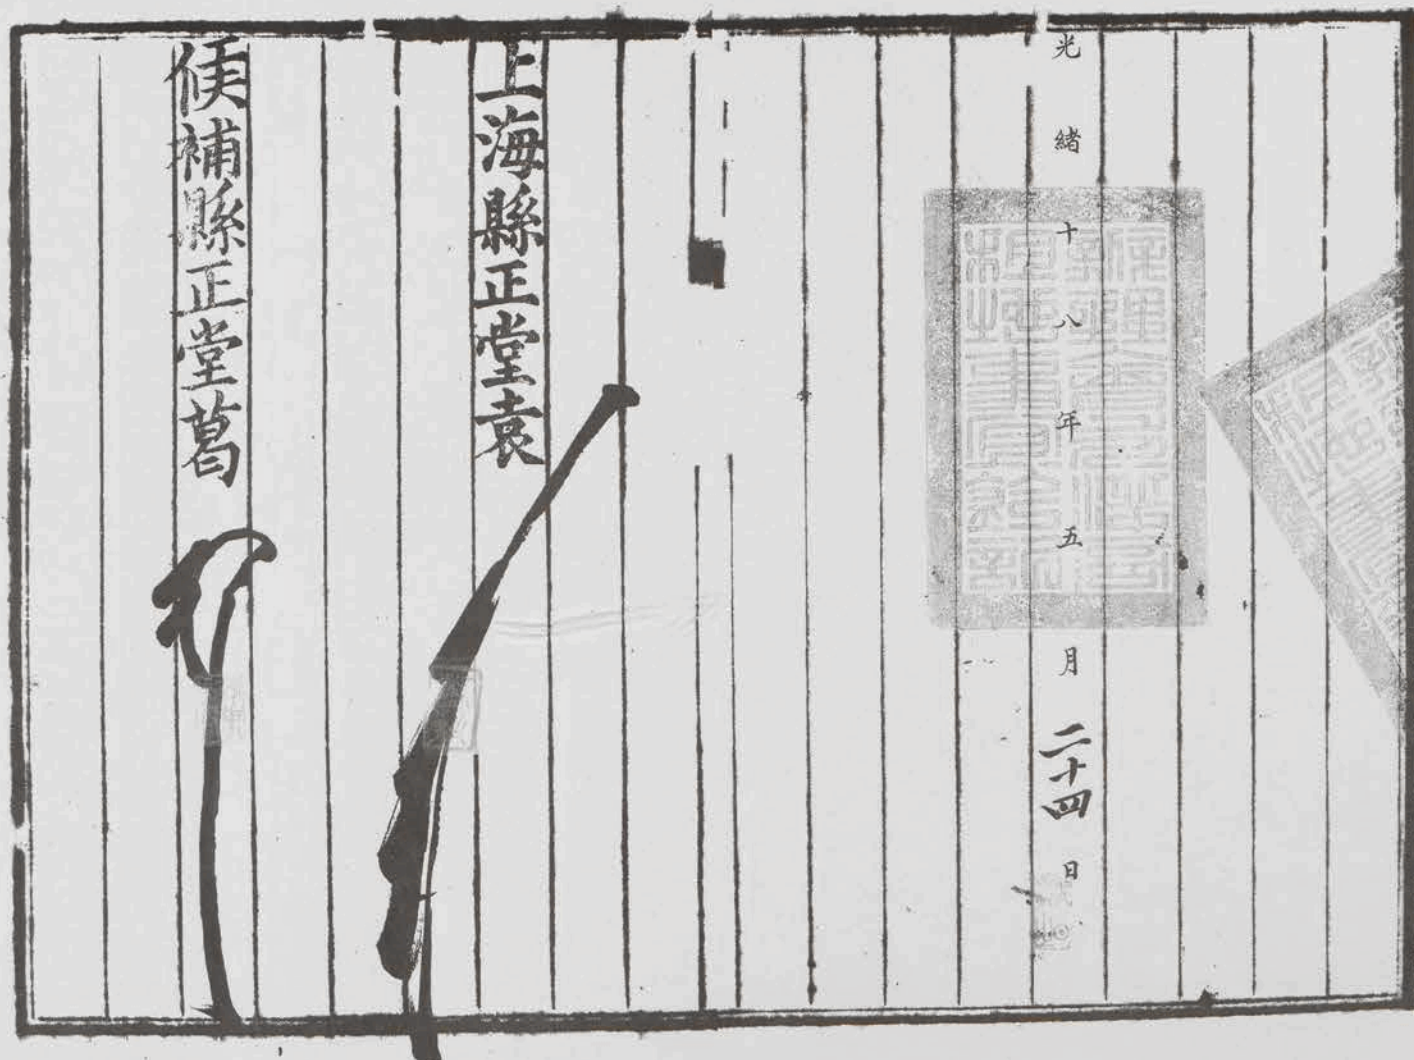 光緒十八年五月二十四日
上海縣正堂袁
候補縣正堂葛